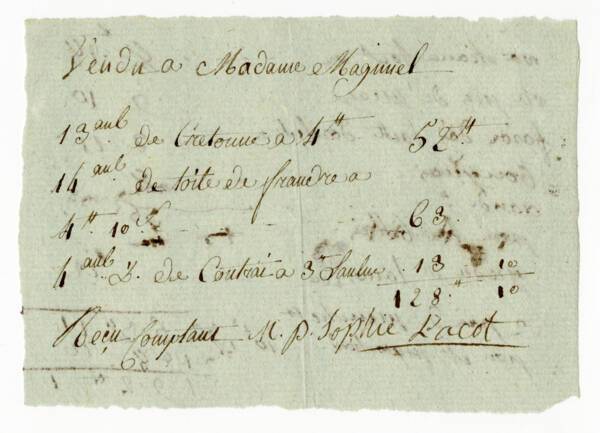 Vendu a Madame Magimel
13 aul de Cretonne a 4tt 52tt
14 aul. de toile de frandre a
4tt 10 s - - - - 63.
4 aul ½ de Contrai a 3 13 10
128.tt 10
Reçu Comptant M. p. Sophie Lacot